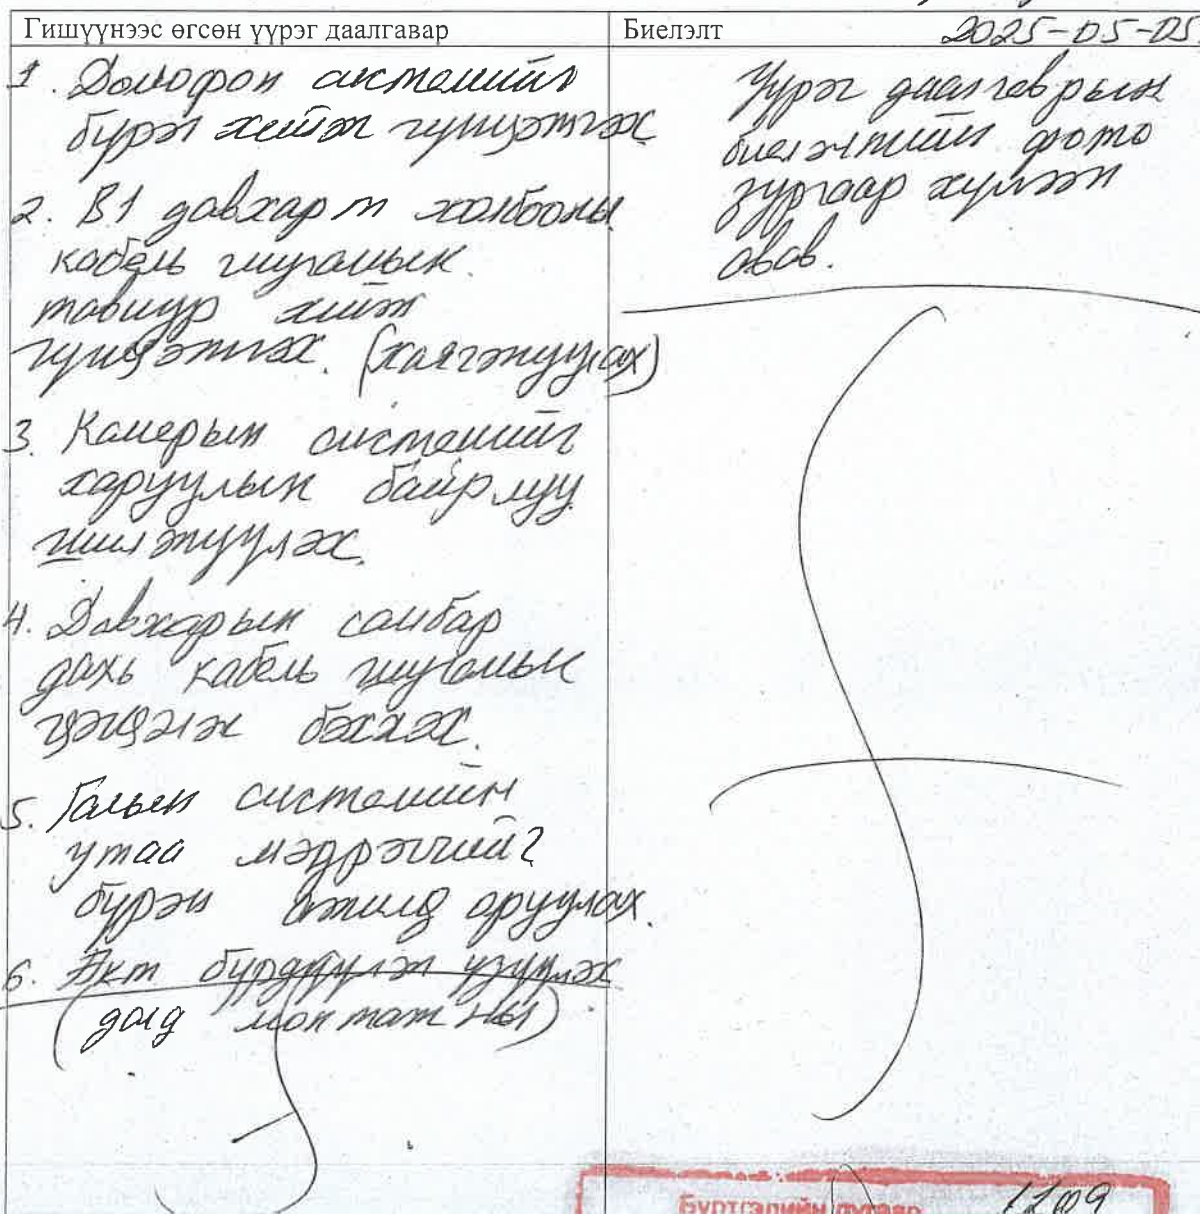 Гишүүнээс өгсөн үүрэг даалгавар
Биелэлт
2025-05-05.
1. Домофон системийг
бүрэн хийж гүйцэтгэх
2. B1 давхарт холбооны
кабель шугамын
тавиур хийж
гүйцэтгэх. (хаягжуулах)
3. Камерын системийг
харуулын байр луу
шилжүүлэх.
4. Давхарын самбар
дахь кабель шугамын
цэгцэлж бэхлэх.
5. Галын системийн
утаа мэдрэгчийг
бүрэн ажилд оруулах.
6. Акт бүрдүүлэн үзүүлэх
(далд монтажны)
Үүрэг даалгаврын
биелэлтийг фото
зургаар хүлээн
авав.
Бүртгэлийн дугаар
1209